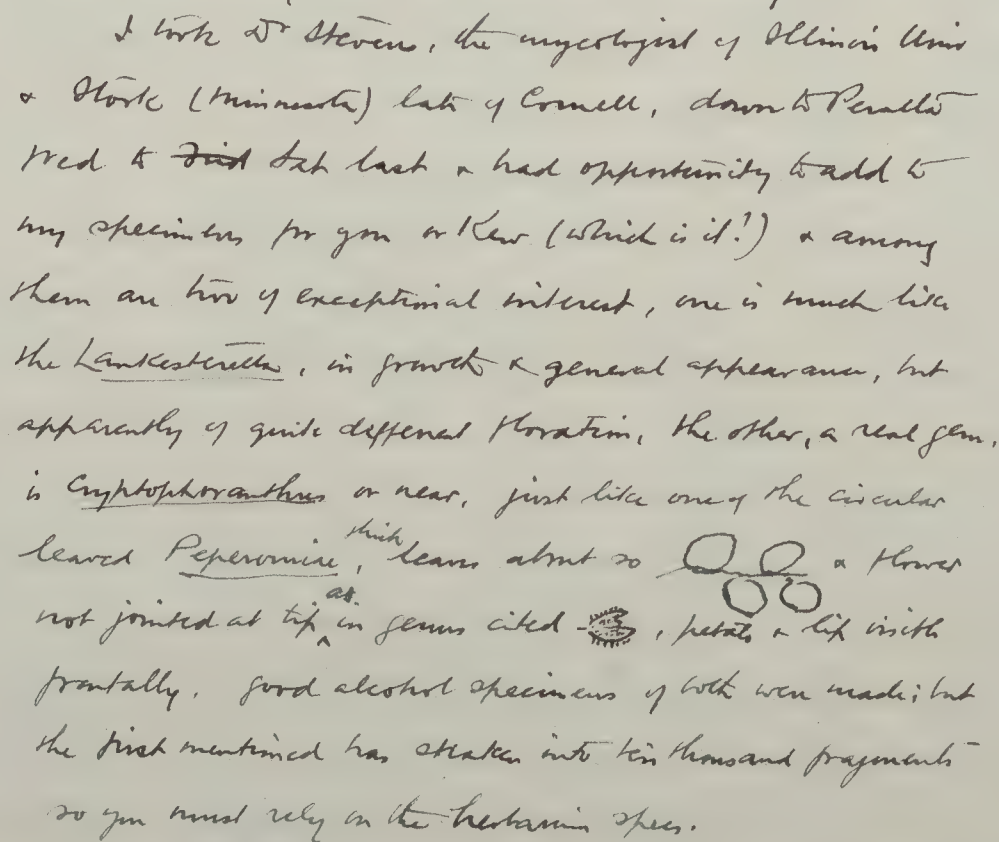 I took Dr Stevens, the mycologist of Illinois Univ
& Stork (Minnesota) late of Cornell, down to Peralta
Wed to Sat last & had opportunity to add to
my specimens for you or Kew (which is it?) & among
them are two of exceptional interest, one is much like
the Lankesterella, in growth & general appearance, but
apparently of quite different floration, the other, a real gem,
is Cryptophoranthus or near, just like one of the circular
leaved Peperomiae, thick leaves about so & flower
not jointed at tip as in genus cited , petals & lip visible
frontally. Good alcohol specimens of both were made; but
the first mentioned has shaken into ten thousand fragments
so you must rely on the herbarium specs.